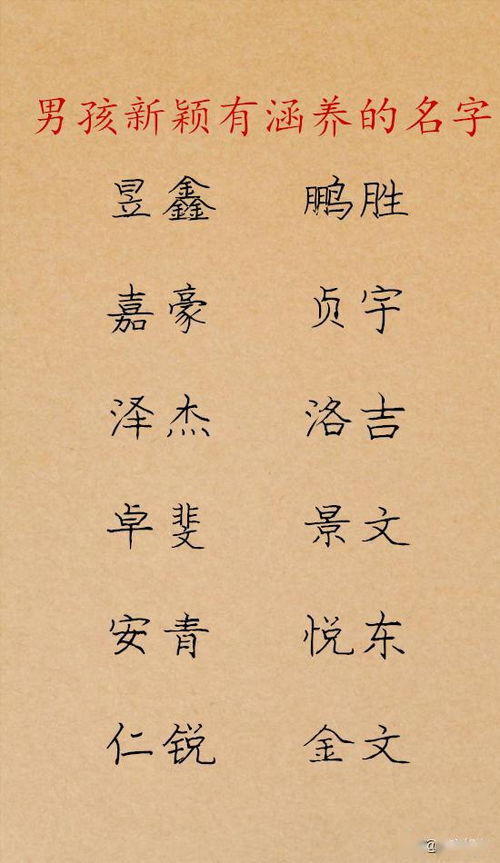 男孩新颖有涵养的名字
昱鑫 鹏胜
嘉豪 贞宇
泽杰 洛吉
卓斐 景文
安青 悦东
仁锐 金文